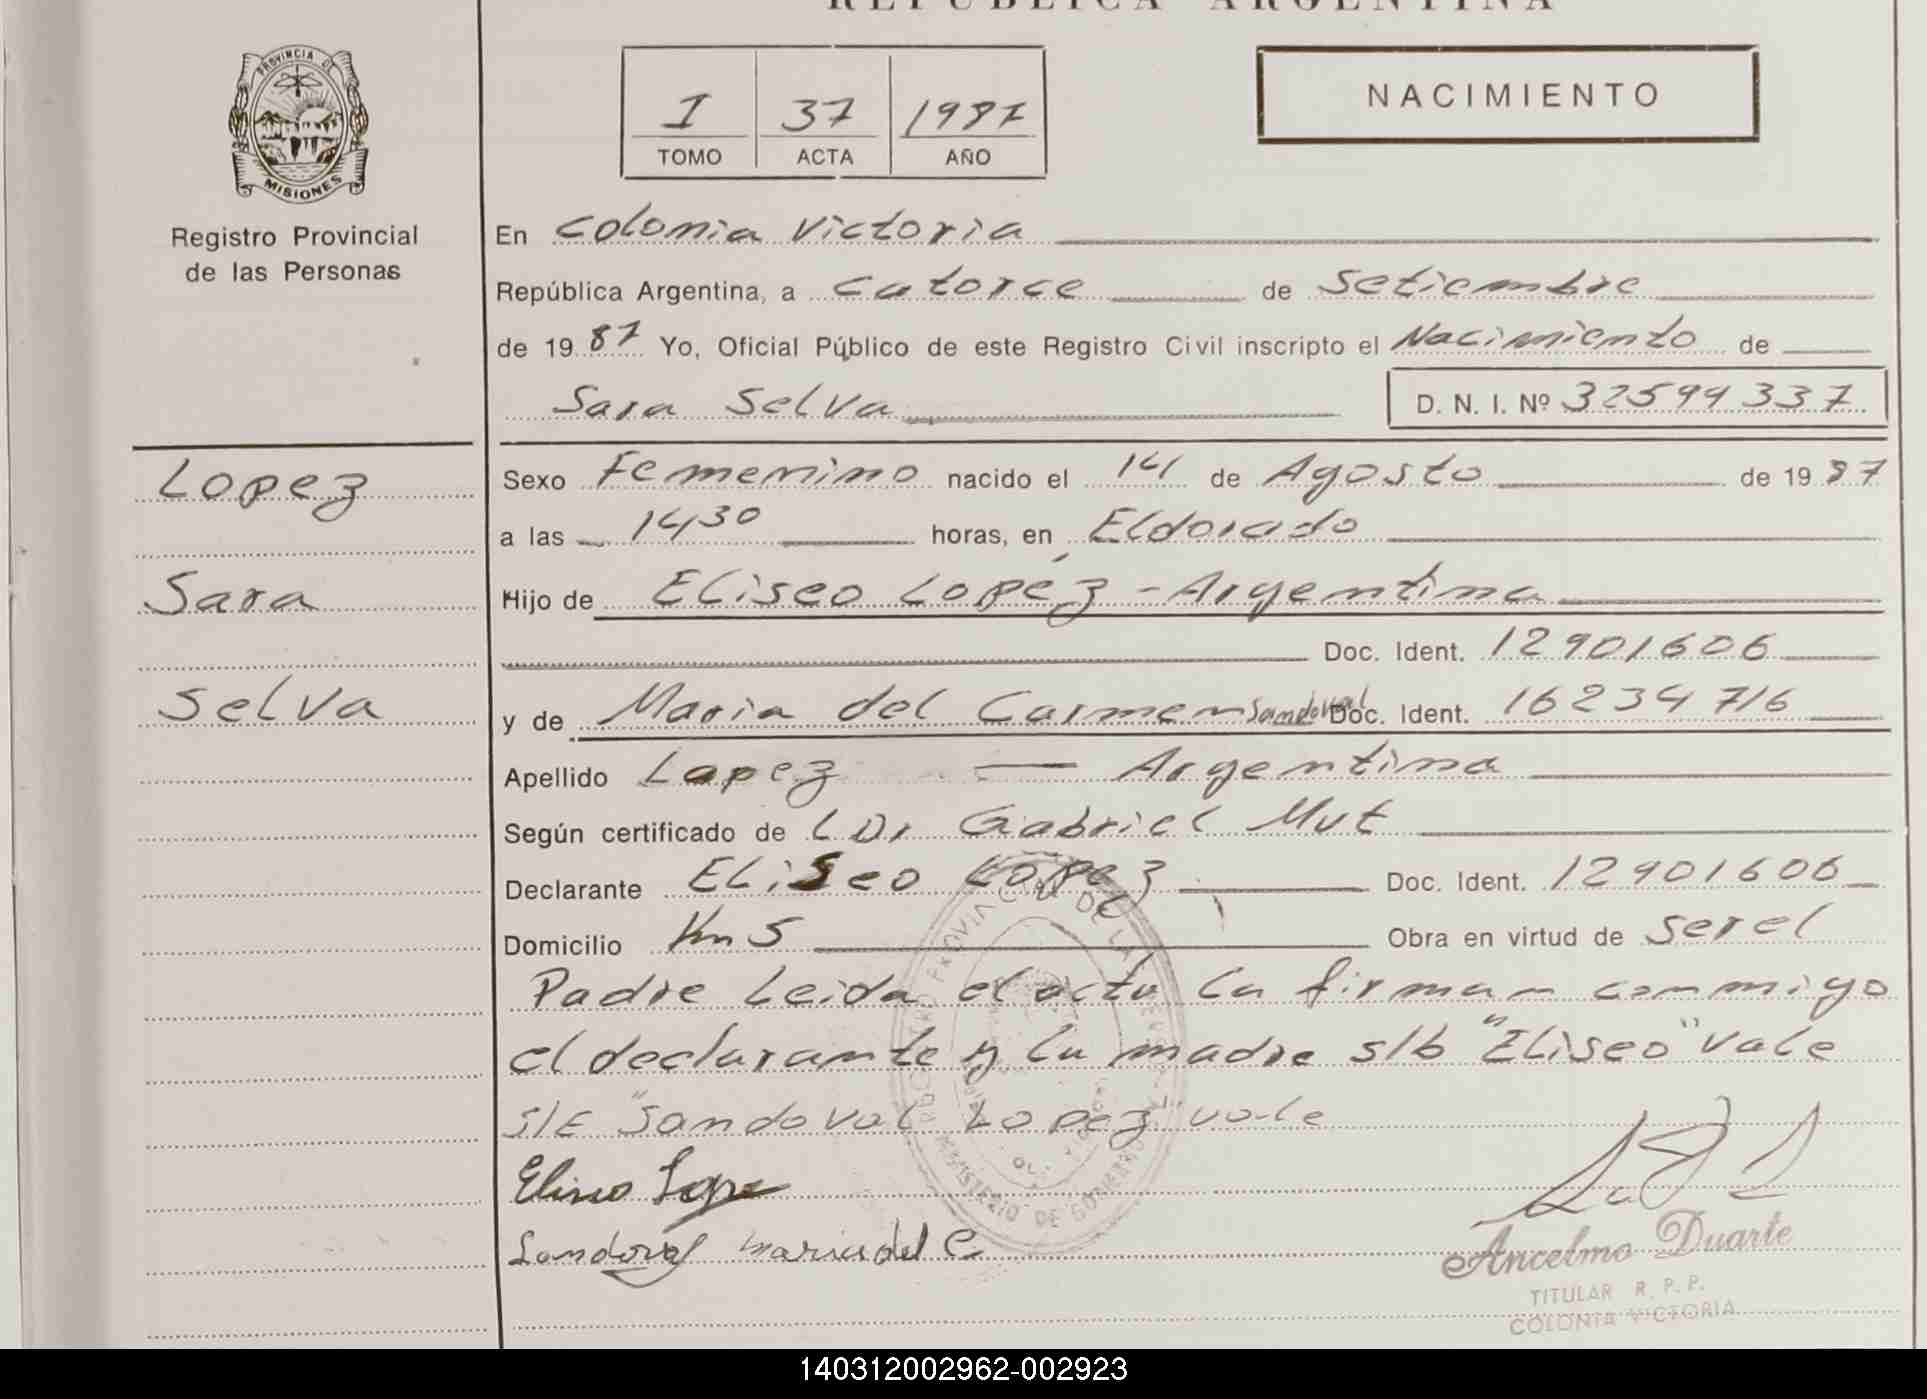 REPUBLICA ARGENTINA
PROVINCIA DE
MISIONES
Registro Provincial
de las Personas
I 37 1987
TOMO ACTA AÑO
NACIMIENTO
En Colonia Victoria
República Argentina, a Catorce de Setiembre
de 1987 Yo, Oficial Público de este Registro Civil inscripto el Nacimiento de
Sara Selva D. N. I. Nº 32594337
Lopez
Sara
Selva
Sexo Femenino nacido el 14 de Agosto de 1987
a las 1430 horas, en Eldorado
Hijo de Eliseo Lopéz - Argentina
Doc. Ident. 12901606
y de Maria del Carmen Sandoval Doc. Ident. 16234716
Apellido Lopez — Argentina
Según certificado de L Dr Gabriel Mut
Declarante Eliseo Lopez Doc. Ident. 12901606
Domicilio Km 5 Obra en virtud de ser el
Padre Leida el acta la firman conmigo
el declarante y la madre s/b "Eliseo" Vale
S/E "Sandoval Lopez" vale
Eliseo Lope
Sandoval Maria del C
MINISTERIO DE GOBIERNO
Ancelmo Duarte
TITULAR R. P. P.
COLONIA VICTORIA
140312002962-002923